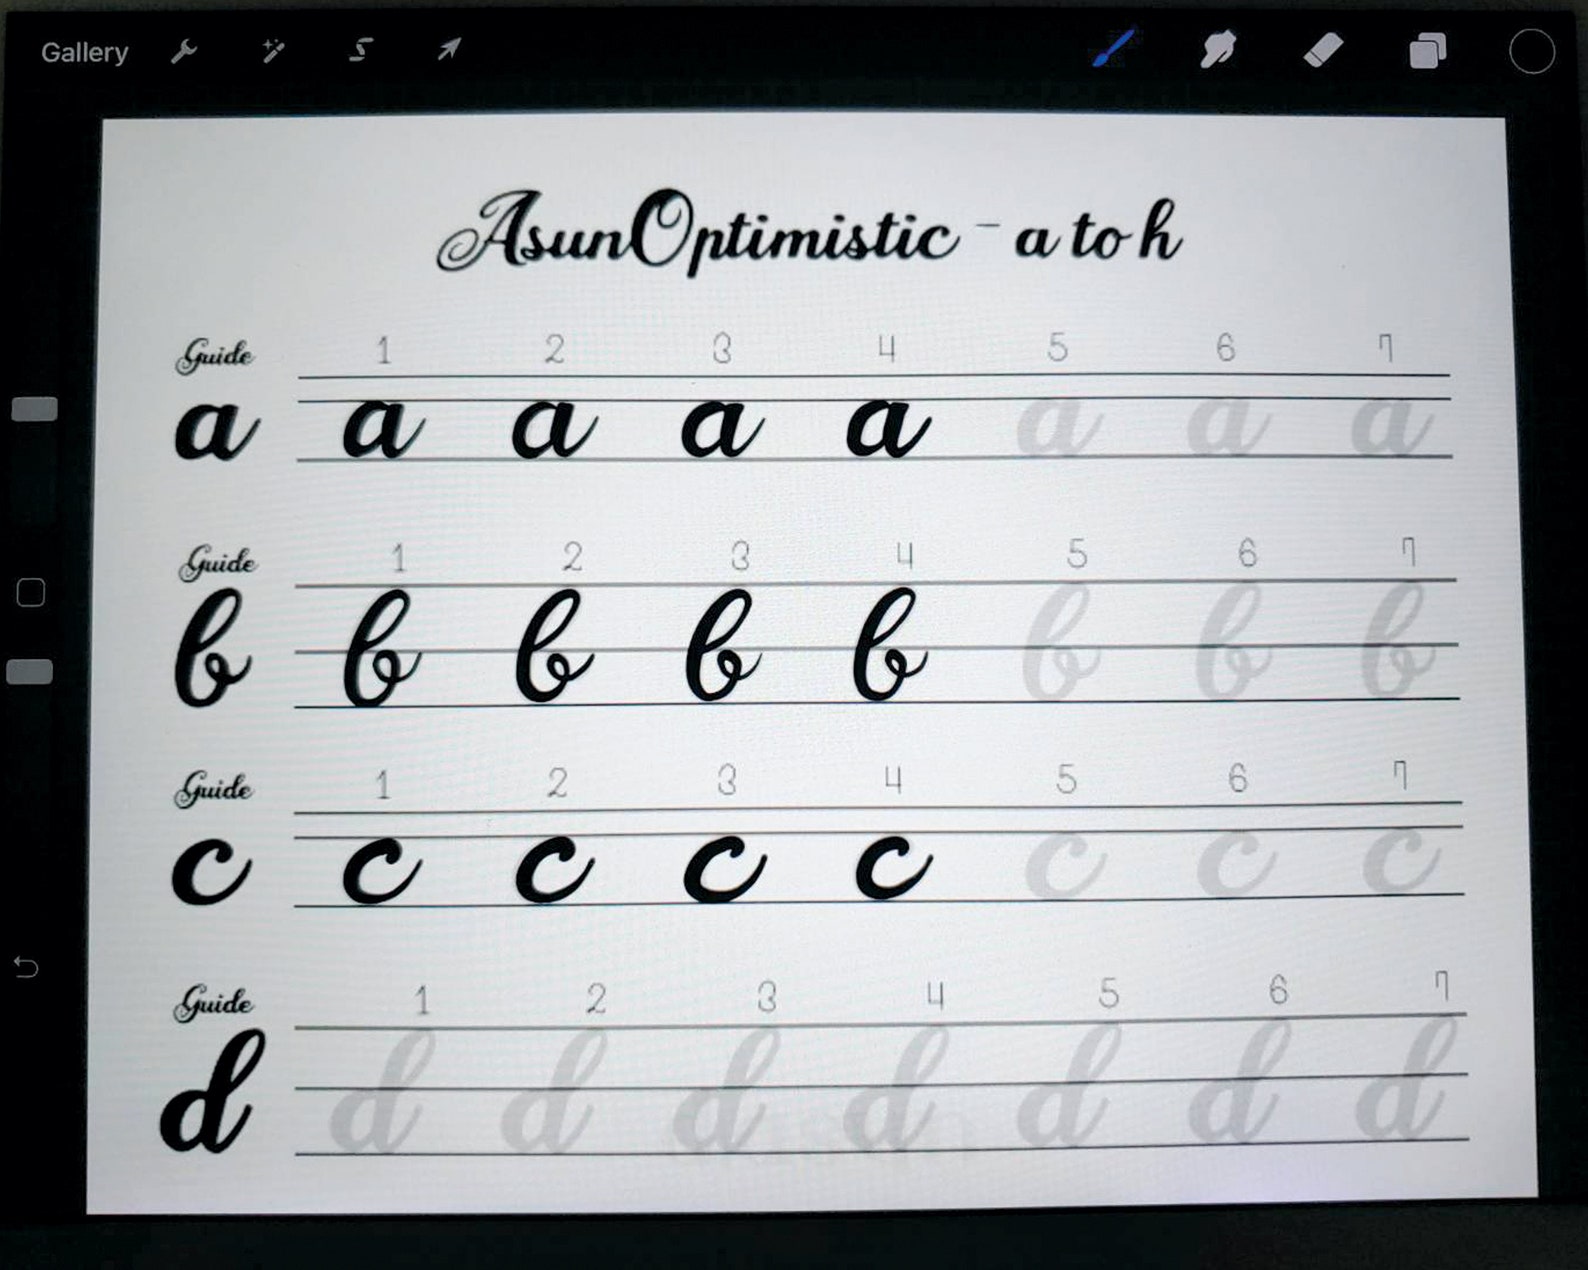 Gallery
AsunOptimistic - a to h
Guide 1 2 3 4 5 6 7
a a a a a a a a
Guide 1 2 3 4 5 6 7
b b b b b b b b
Guide 1 2 3 4 5 6 7
c c c c c c c c
Guide 1 2 3 4 5 6 7
d d d d d d d d